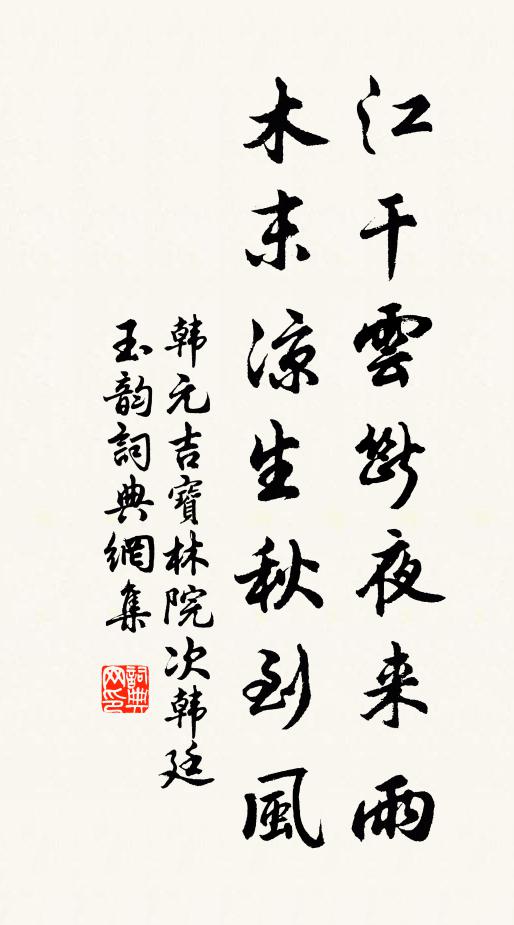 江干雲斷夜來雨
木末涼生秋到風
韩元吉寶林院次韩廷
玉韵詞典網集
詞典網印